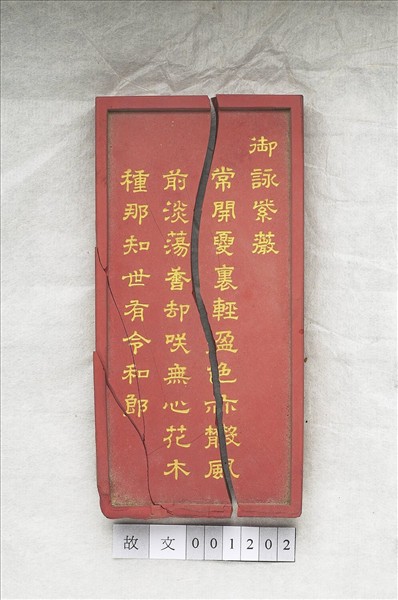 御詠紫薇
常開夏裏輕盈色亦散風
前淡蕩香却咲無心花木
種那知世有令和郎
故文001202